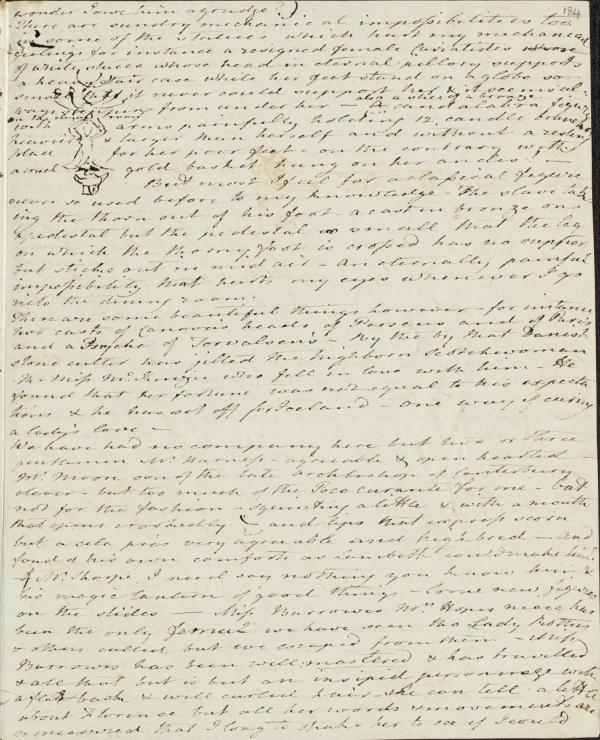 184
wonder I owe him a grudge?)
There are sundry mechanical impossibilities too
in some of the statues which hurt my mechanical
feelings for instance a resigned female Cariatides
of white stucco whose head in eternal pillory supports
a heavy stair case while her feet stand on a globe so
small that it never could support her & it seems al
ways from under her — also a slice of a bronze
figure
with arms painfully holding 12 candle branches
heavier & larger than herself and without a resting
place for her poor feet on the contrary with
a cruel gold basket hung on her ancles! —
But most I feel for a classical figure
never so used before to my knowledge. The slave tak-
ing the thorn out of his foot. a cast in bronze on
a pedestal but the pedestal so small that the leg
on which the thorny foot is crossed has no support
but sticks out in mid air — an eternally painful
impossibility that hurts my eyes whenever I go
into the dining room.
There are some beautiful things however — for instance
two casts of Canova's heads of Perseus and of Paris
and a Psyche of Torwalsen's — By the by that Danish
stone cutter has jilted the highborn Scotchwoman
Miss McKenzie who fell in love with him — He
found that her fortune was not equal to his expecta
tions & he has set off for Iceland — one way of curing
a lady's love —
We have had no company here but two or three
gentlemen Mr Harness — agreeable & open hearted —
Mr Moon son of the late archbishop of Canterbury
clever — but too much of the Poco curante for me — but
not for the fashion — squinting a little & with a mouth
that opens crookedly and lips that express scorn
but a cela près very agreeable and highbred — and
fond of his own comforts as Lambeth could make him
Of Mr Sharpe I need say nothing you know him &
his magic lantern of good things — Some new figures
on the slides — Miss Burrowes Mrs Hopes niece has
been the only female we have seen tho Lady Rothes
& others called but we escaped from them — Miss
Burrowes has been well mastered & has travelled
& all that but is but an insipid personnage with
a flat back & well curled hair. she can tell a little
about Florence but all her words & movements are
so measured that I long to shake her to see if I could